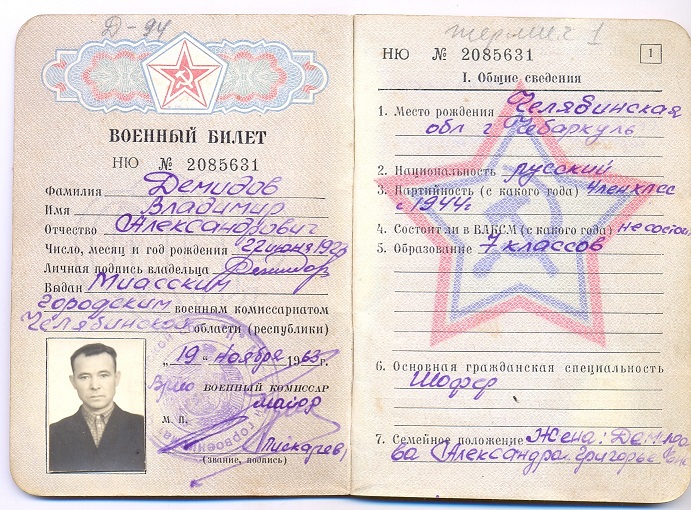 Д-94
ВОЕННЫЙ БИЛЕТ
НЮ № 2085631
Фамилия Демидов
Имя Владимир
Отчество Александрович
Число, месяц и год рождения 22 июня 192
Личная подпись владельца
Выдан Миасским
городским военным комиссариатом
Челябинской области (республики)
„19" ноября 1963 г.
Врио ВОЕННЫЙ КОМИССАР
майор
М. П.
Пискарев
(звание, подпись)
1
НЮ № 2085631
1
I. Общие сведения
1. Место рождения Челябинская
обл г Чебаркуль
2. Национальность русский
3. Партийность (с какого года) член кпсс
с 1944г
4. Состоит ли в ВЛКСМ (с какого года) не состоит
5. Образование 7 классов
6. Основная гражданская специальность
Шофер
7. Семейное положение Жена: Демидо
ва Александра Григорье